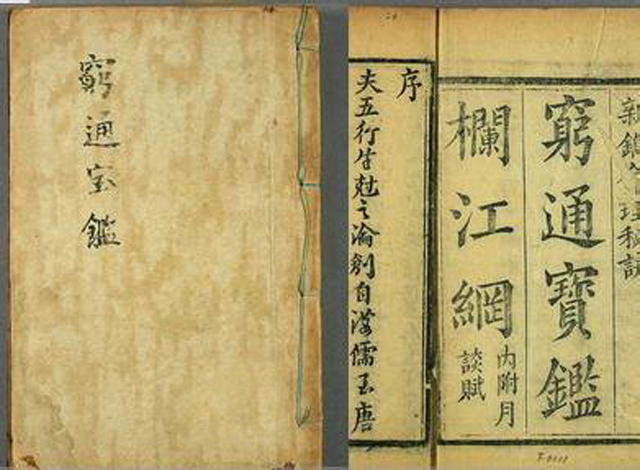 窮通宝鑑
新鐫命理秘訣
窮通寶鑑
欄江網
內附月
談賦
序
夫五行生尅之論創自漢儒至唐